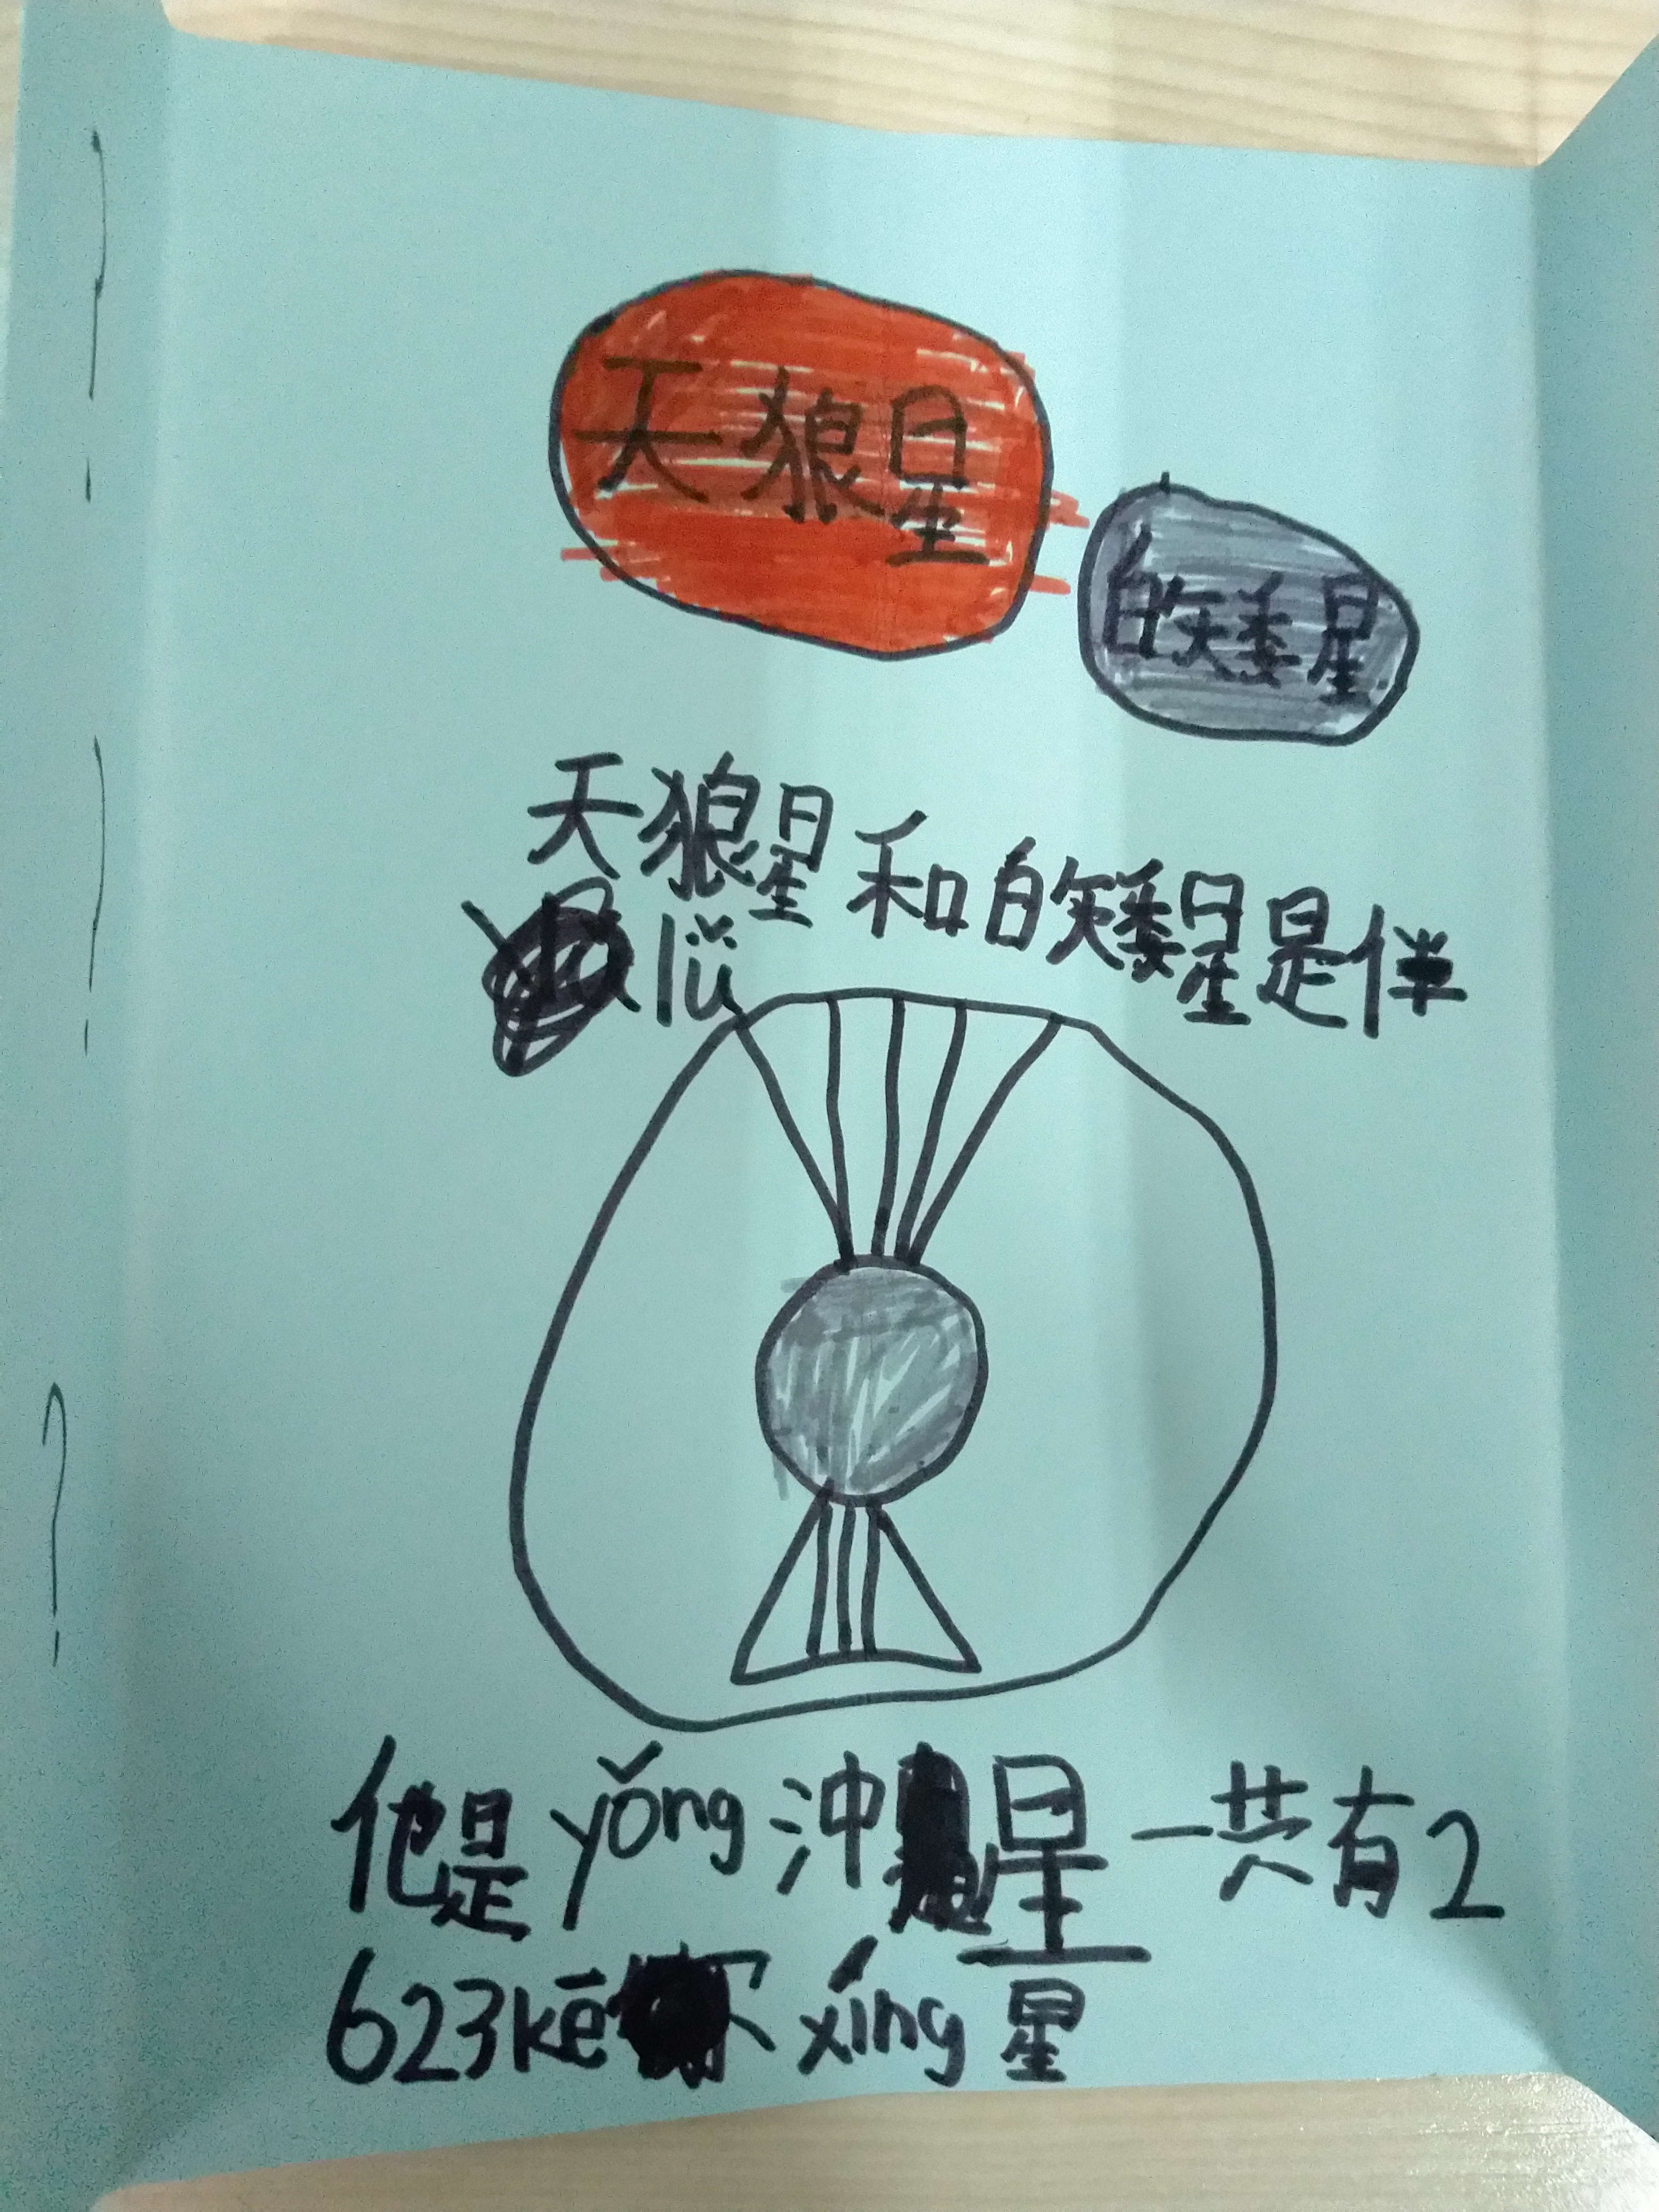 天狼星
白矮星
天狼星和白矮星是伴
lǚ
他是yǒng沖星一共有2
623kē xíng星